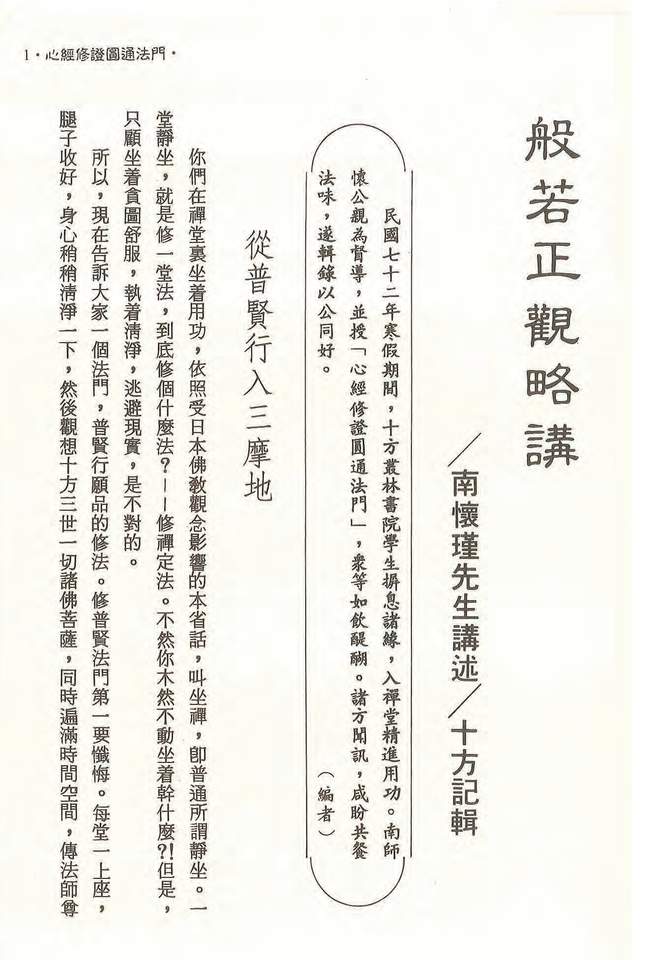 1・心經修證圓通法門・
般若正觀略講
／南懷瑾先生講述／十方記輯
民國七十二年寒假期間，十方叢林書院學生摒息諸緣，入禪堂精進用功。南師
懷公親為督導，並授「心經修證圓通法門」，眾等如飲醍醐。諸方聞訊，咸盼共餐
法味，遂輯錄以公同好。
（編者）
從普賢行入三摩地
你們在禪堂裏坐着用功，依照受日本佛敎觀念影響的本省話，叫坐禪，卽普通所謂靜坐。一
堂靜坐，就是修一堂法，到底修個什麼法？－－修禪定法。不然你木然不動坐着幹什麼?!但是，
只顧坐着貪圖舒服，執着淸淨，逃避現實，是不對的。
所以，現在告訴大家一個法門，普賢行願品的修法。修普賢法門第一要懺悔。每堂一上座，
腿子收好，身心稍稍淸淨一下，然後觀想十方三世一切諸佛菩薩，同時遍滿時間空間，傳法師尊